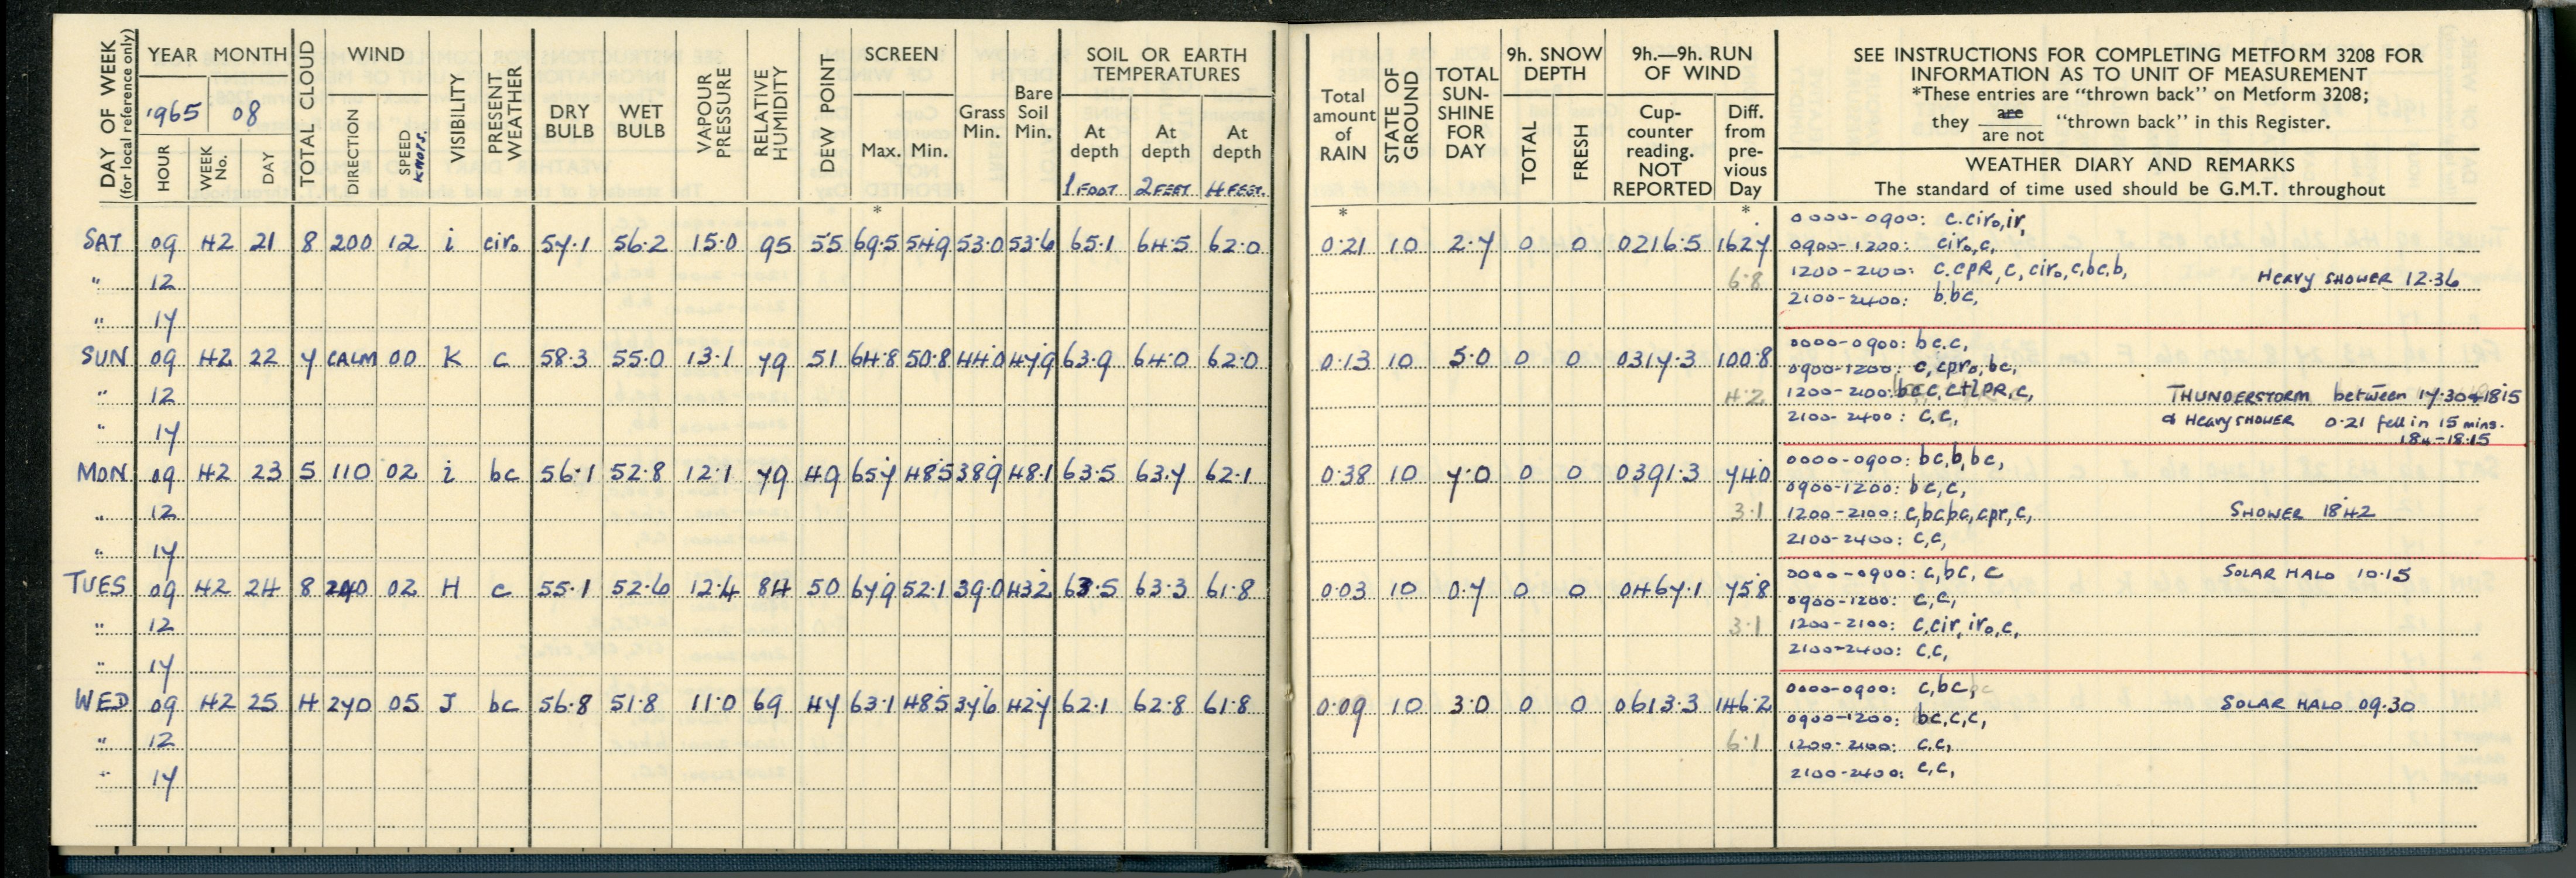 DAY OF WEEK (for local reference only)
YEAR MONTH
1965 08
HOUR WEEK No. DAY
TOTAL CLOUD
WIND
DIRECTION SPEED KNOTS.
VISIBILITY
PRESENT WEATHER
DRY BULB
WET BULB
VAPOUR PRESSURE
RELATIVE HUMIDITY
DEW POINT
SCREEN
Max. Min.
Grass Min.
Bare Soil Min.
SOIL OR EARTH TEMPERATURES
At depth At depth At depth
1 FOOT 2 FEET 4 FEET.
Total amount of RAIN
STATE OF GROUND
TOTAL SUN-SHINE FOR DAY
9h. SNOW DEPTH
TOTAL FRESH
9h.—9h. RUN OF WIND
Cup-counter reading. NOT REPORTED
Diff. from pre-vious Day
SEE INSTRUCTIONS FOR COMPLETING METFORM 3208 FOR
INFORMATION AS TO UNIT OF MEASUREMENT
*These entries are "thrown back" on Metform 3208;
they are / are not "thrown back" in this Register.
WEATHER DIARY AND REMARKS
The standard of time used should be G.M.T. throughout
* * *
SAT 09 42 21 8 200 12 i ciro 57.1 56.2 15.0 95 55 69.5 54.9 53.0 53.6 65.1 64.5 62.0 0.21 10 2.7 0 0 0216.5 162.7
0000-0900: c.ciro,ir,
0900-1200: ciro,c,
" 12 6.8 1200-2100: c.cpR, c, ciro, c,bc,b, HEAVY SHOWER 12.36
2100-2400: b,bc,
" 17
SUN 09 42 22 7 CALM 00 K c 58.3 55.0 13.1 79 51 64.8 50.8 44.0 47.9 63.9 64.0 62.0 0.13 10 5.0 0 0 0317.3 100.8
0000-0900: bc.c,
0900-1200: c,cpro,bc,
" 12 4.2 1200-2100: c,ctlPR,c, THUNDERSTORM between 17.30 & 1815
2100-2400: c,c, & HEAVY SHOWER 0.21 fell in 15 mins.
" 17
MON 09 42 23 5 110 02 i bc 56.1 52.8 12.1 79 49 65.7 48.5 38.9 48.1 63.5 63.7 62.1 0.38 10 7.0 0 0 0391.3 74.0
0000-0900: bc,b,bc,
0900-1200: bc,c,
" 12 3.1 1200-2100: c,bcbc,cpr,c, SHOWER 1842
2100-2400: c,c,
" 17
TUES 09 42 24 8 02 H c 55.1 52.6 12.4 84 50 67.9 52.1 39.0 43.2 63.5 63.3 61.8 0.03 10 0.7 0 0 0467.1 75.8
0000-0900: c,bc, c SOLAR HALO 10.15
0900-1200: c,c,
" 12 3.1 1200-2100: c.cir, iro,c,
2100-2400: c.c,
" 17
WED 09 42 25 4 270 05 J bc 56.8 51.8 11.0 69 47 63.1 48.5 37.6 42.7 62.1 62.8 61.8 0.09 10 3.0 0 0 0613.3 146.2
0000-0900: c,bc, SOLAR HALO 09.30
0900-1200: bc,c,c,
" 12 6.1 1200-2100: c.c,
" 17 2100-2400: c,c,